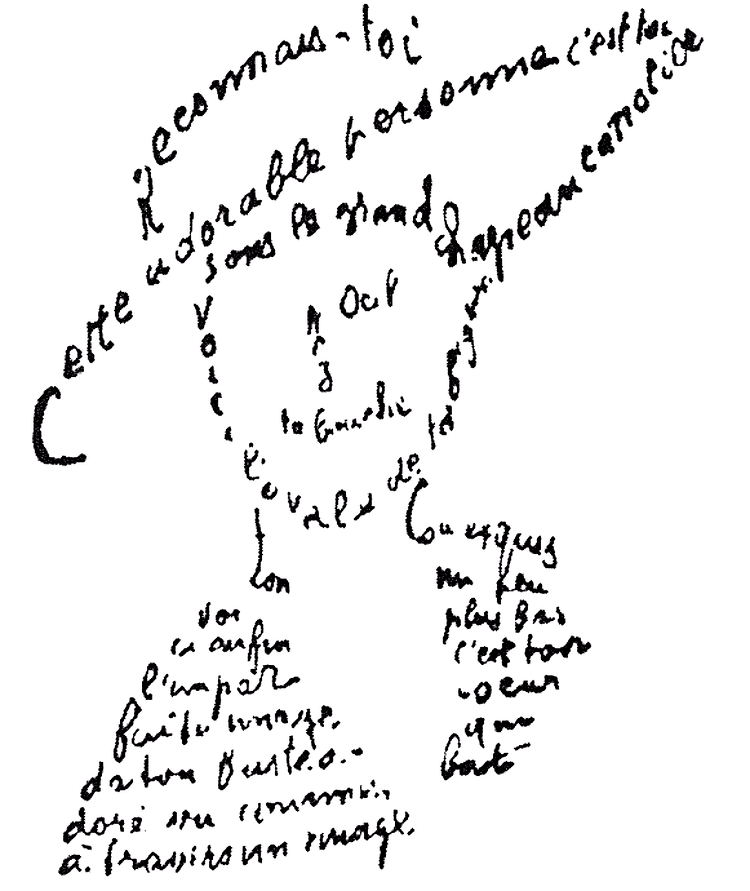 Reconnais-toi
Cette adorable personne c'est toi
sous le grand chapeau canotier
Oeil
Nez
La bouche
Voici l'ovale de ta figure
Ton
Cou exquis
Voi
ci enfin
l'impar
faite image
de ton buste a
doré vu comme
à travers un nuage
un peu
plus bas
c'est ton
coeur
qui
bat